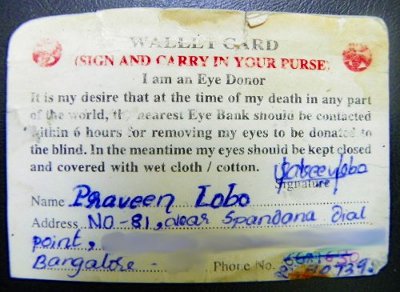 WALLET CARD
(SIGN AND CARRY IN YOUR PURSE)
I am an Eye Donor
It is my desire that at the time of my death in any part
of the world, the nearest Eye Bank should be contacted
within 6 hours for removing my eyes to be donated to
the blind. In the meantime my eyes should be kept closed
and covered with wet cloth / cotton.
Signature
Name Praveen Lobo
Address NO-81, near Spandana Dial
point,
Bangalore. Phone No.